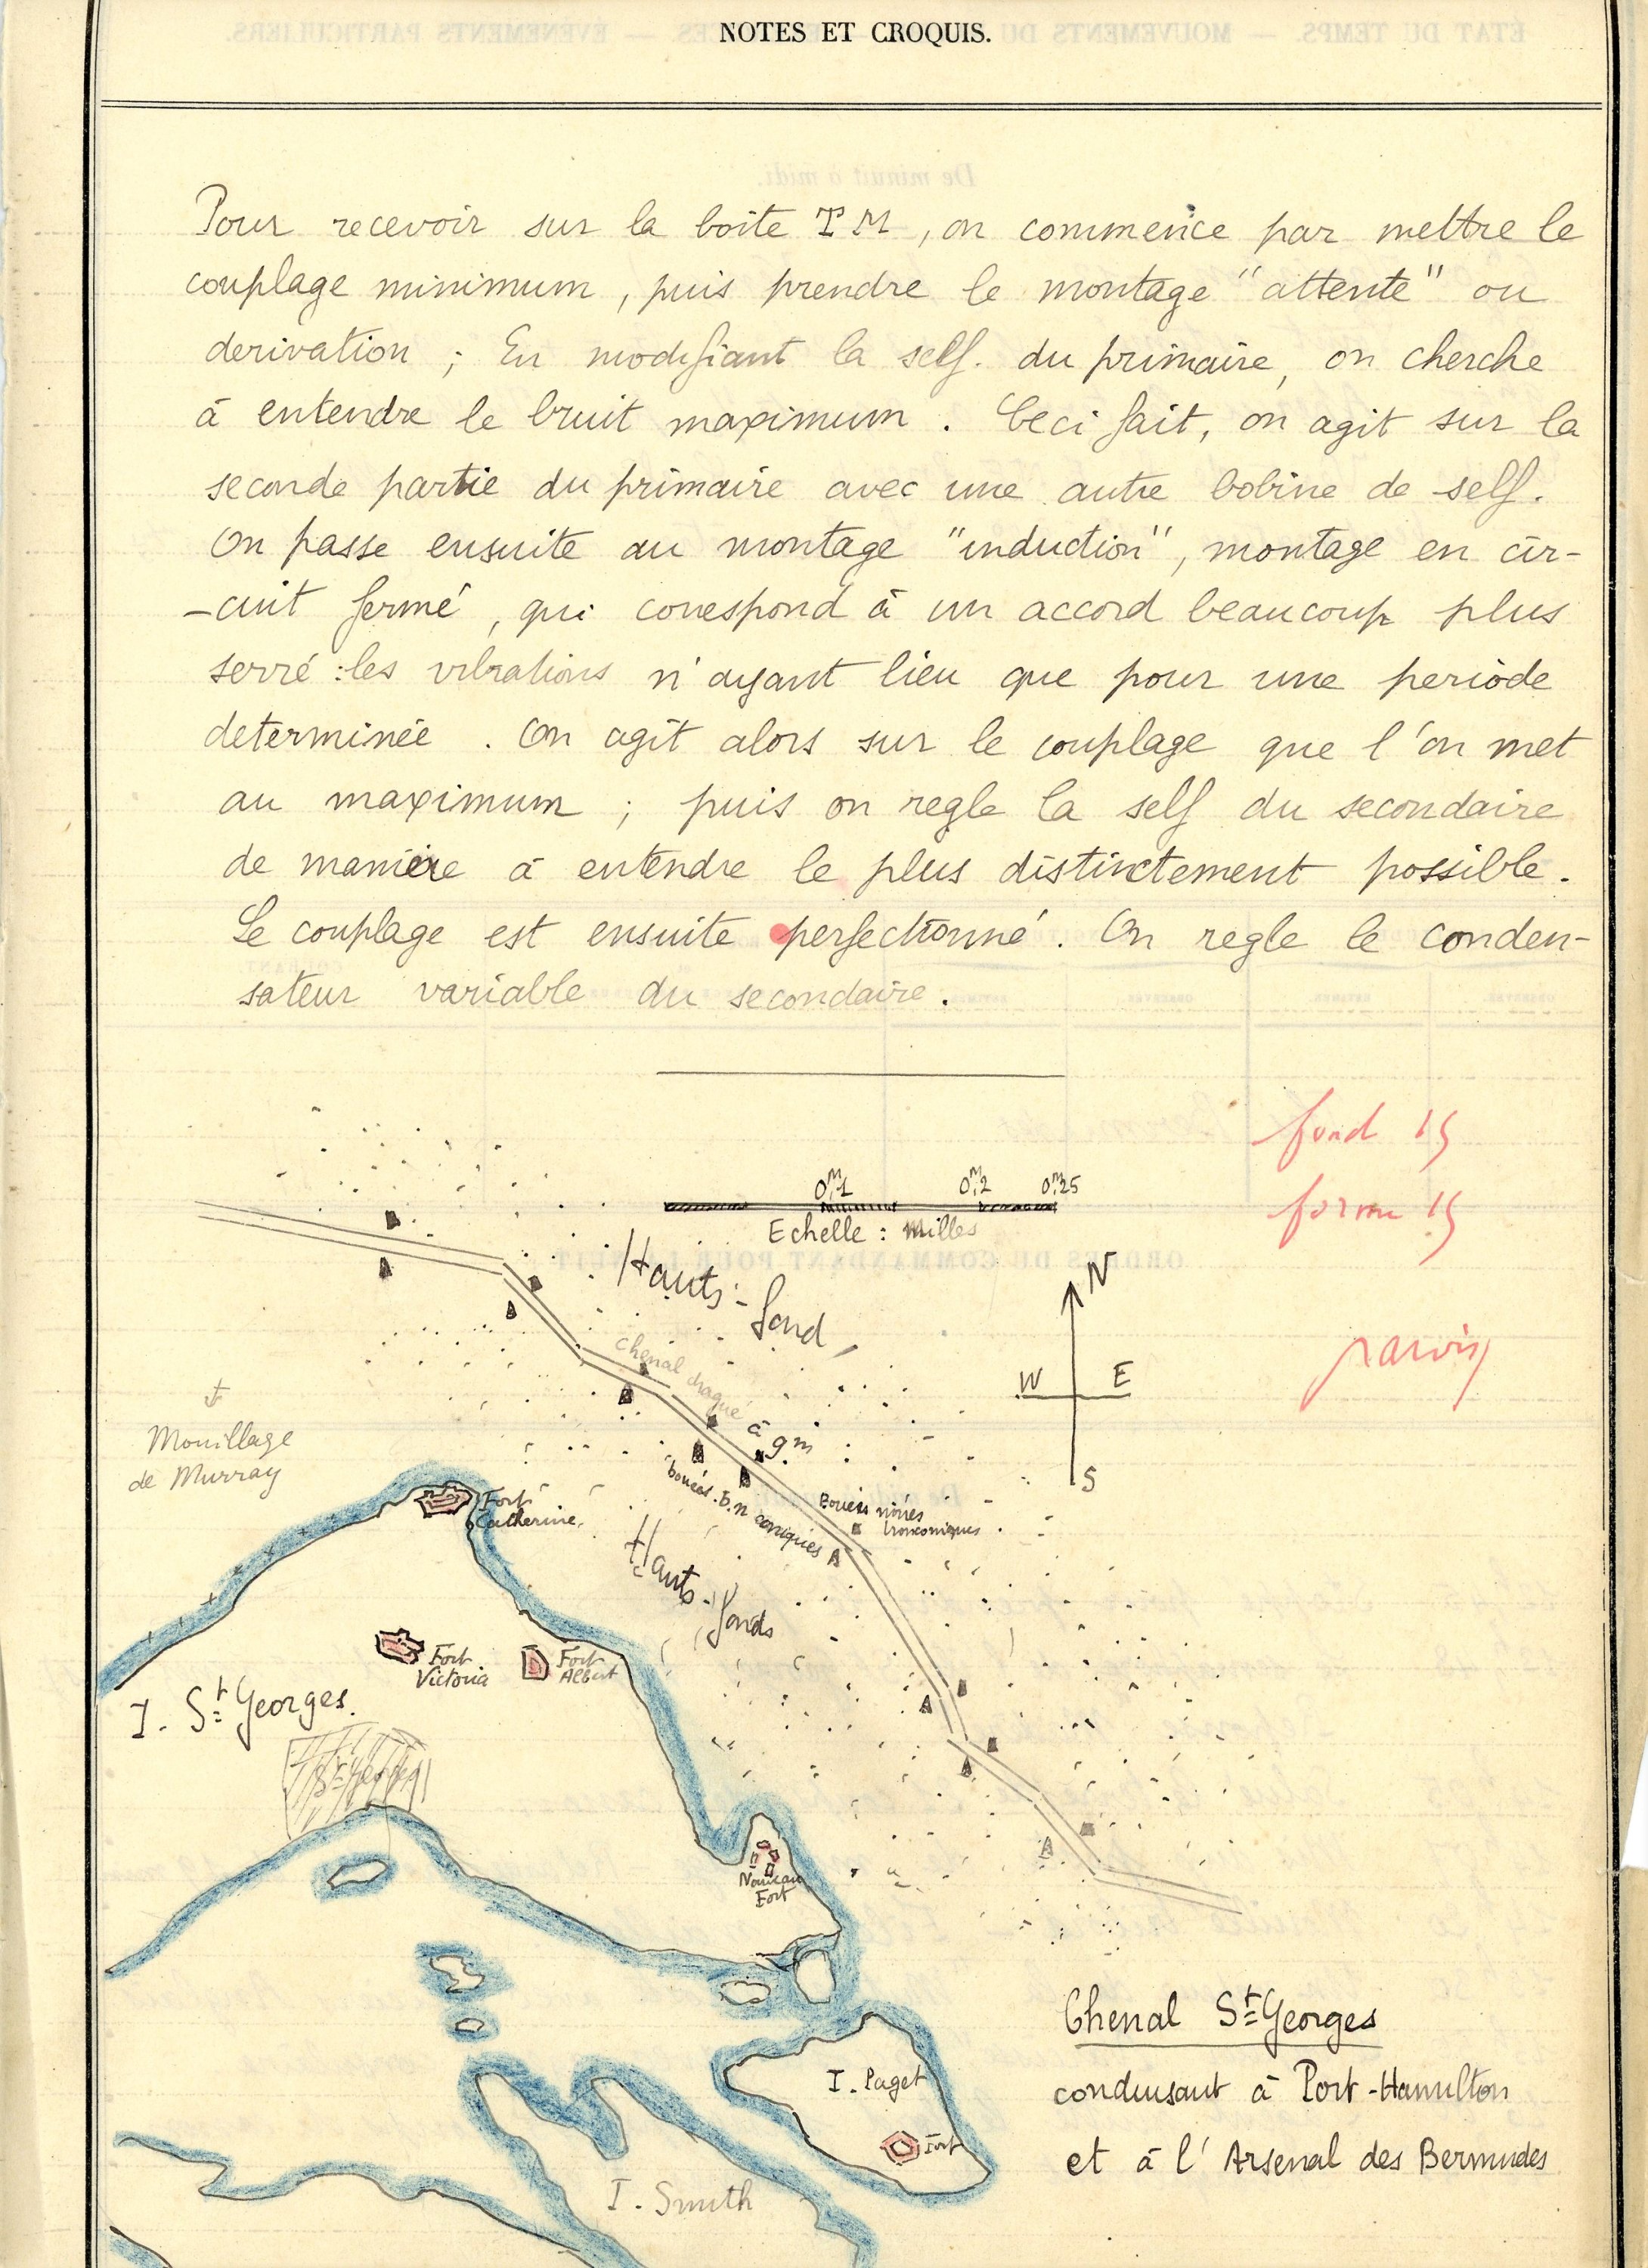 NOTES ET CROQUIS.
Pour recevoir sur la boîte T M, on commence par mettre le
couplage minimum, puis prendre le montage "attente" ou
derivation ; En modifiant la self. du primaire, on cherche
à entendre le bruit maximum. Ceci fait, on agit sur la
seconde partie du primaire avec une autre bobine de self.
On passe ensuite au montage "induction", montage en cir-
-cuit fermé, qui correspond à un accord beaucoup plus
serré : les vibrations n'ayant lieu que pour une periode
determinée. On agit alors sur le couplage que l'on met
au maximum ; puis on regle la self du secondaire
de manière à entendre le plus distinctement possible.
Le couplage est ensuite perfectionné. On regle le conden-
sateur variable du secondaire.
fond 15
forme 15
0M,1 0M,2 0M,25
Echelle : Milles
Hauts-fond
N
W E
S
chenal dragué à 9m
Mouillage
de Murray
bouées b.n coniques
Bouées noires
tronconiques
Fort
Catherine
Hauts-fonds
Fort
Victoria
Fort
Albert
I. St Georges.
St Georges
Nouveau
Fort
Chenal St Georges
conduisant à Port-Hamilton
et à l'Arsenal des Bermudes
I. Paget
Fort
I. Smith